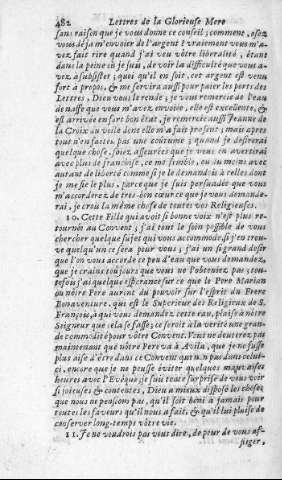 482 Lettres de la Glorieuse Mere
sans raison que je vous donne ce conseil; comment, osez
vous déja m'envoier de l'argent? vraiement vous m'a-
vez fait rire quand j'ai veu vôtre liberalité, étant
dans la peine où je suis, de voir la difficulté que vous a-
vez à subsister; quoi qu'il en soit, cet argent est venu
fort à propos, & me servira aussi pour païer les ports des
Lettres, Dieu vous le rende; je vous remercie de l'eau
de naffe que vous m'avez envoiée, elle est excellente, &
est arrivée en fort bon état, je remercie aussi Jeanne de
la Croix du voile dont elle m'a fait present; mais apres
tout n'en faites pas une coûtume; quand je desirerai
quelque chose, soiez asseurée que je vous en avertirai
avec plus de franchise, ce me semble, ou du moins avec
autant de liberté comme si je le demandois à celles dont
je me fie le plus, parce que je suis persuadée que vous
m'accorderez de tres-bon cœur ce que je vous demande-
rai, je croi la même chose de toutes vos Religieuses.
10. Cette Fille qui avoit si bonne voix n'est plus re-
tournée au Convent; j'ai tout le soin possible de vous
chercher quelque sujet qui vous accommode; si j'en trou-
ve quelqu'un ce sera pour vous; j'ai un si grand desir
que l'on vous accorde ce peu d'eau que vous demandez,
que je crains toûjours que vous ne l'obteniez pas; tou-
tefois j'ai quelque esperance sur ce que le Pere Marian
ou nôtre Pere auront du pouvoir sur l'esprit du Frere
Bonaventure, qui est le Superieur des Religieux de S.
François, à qui vous demandez cette eau, plaise à nôtre
Seigneur que cela se fasse; ce seroit à la verité une gran-
de commodité pour vôtre Convent. Vous ne douterez pas
maintenant que nôtre Pere va à Avila, que je ne fusse
plus aise d'être dans ce Convent que non pas dans celui-
ci, encore que je ne pusse éviter quelques mauvaises
heures avec l'Evêque, je suis toute surprise de vous voir
si joieuses & contentes, Dieu a mieux disposé les choses
que nous ne pensions pas, qu'il soit beni à jamais pour
toutes les faveurs qu'il nous a fait, & qu'il lui plaise de
conserver long-temps vôtre vie.
11. Je ne voudrois pas vous dire, de peur de vous af-
fliger,